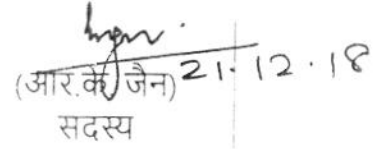 (आर.के. जैन) 21.12.18
सदस्य